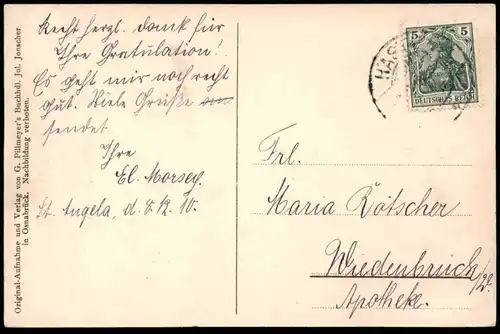 Recht herzl. dank für
Ihre Gratulation!
Es geht mir noch recht
gut. Viele Grüße
sendet
Ihre
El. Morsey.
St. Angela, d. 8.12.10.
Original-Aufnahme und Verlag von G. Pillmeyer's Buchhdl. Jul. Jonscher
in Osnabrück. Nachbildung verboten.
HAS
5 5
DEUTSCHES REICH
Frl.
Maria Rötscher
Wiedenbrück
Apotheke.